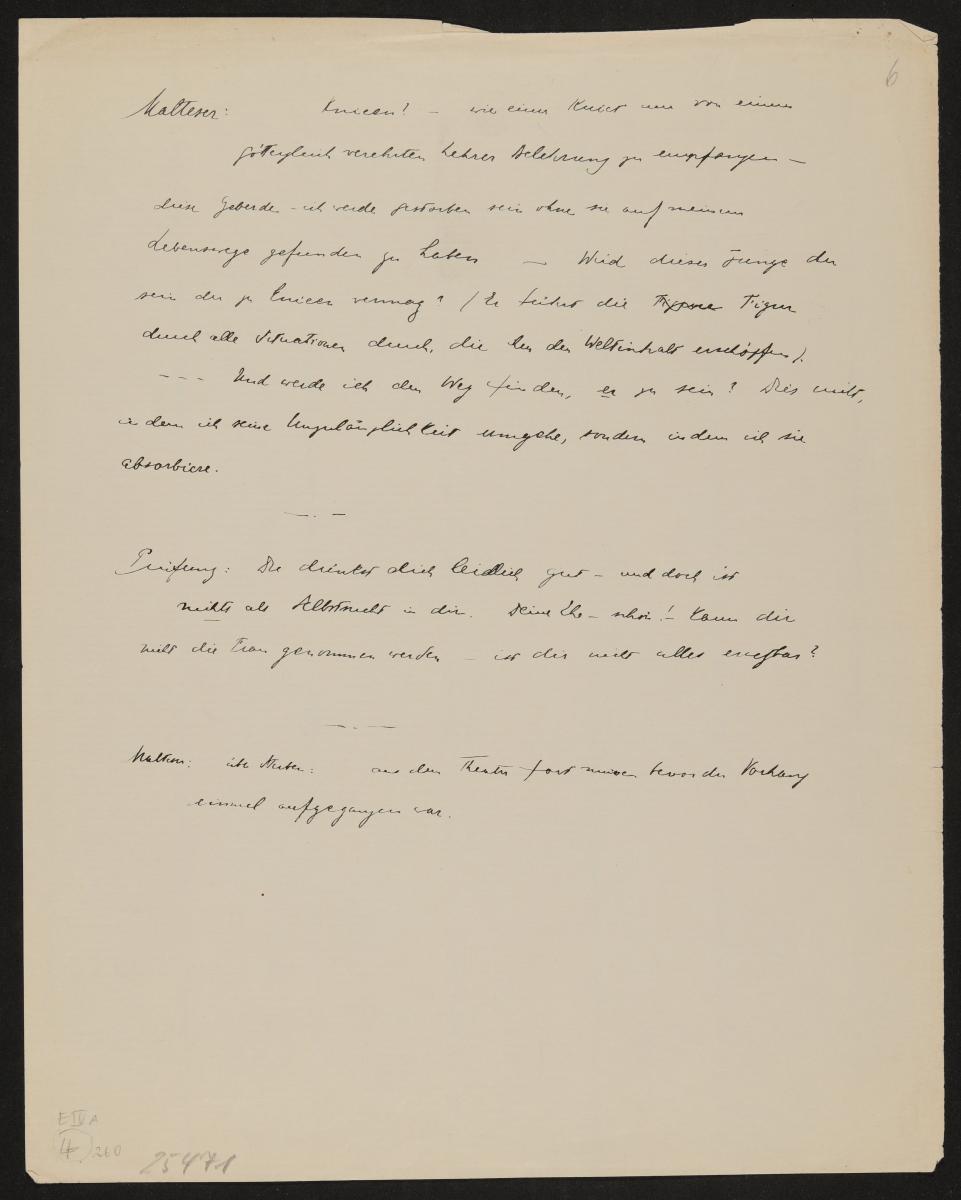 6
Malteser: Knieen? – wie einer kniet um von einem
göttergleich verehrten Lehrer Belehrung zu empfangen –
diese Geberde – ich werde gestorben sein ohne sie auf meinem
Lebenswege gefunden zu haben — Wird dieser Junge der
sein der zu knieen vermag? (Er führt die Figur
durch alle Situationen durch, die den Weltinhalt erschöpfen).
--- Und werde ich den Weg finden, er zu sein? Dies nicht,
indem ich seine Unzulänglichkeit umgehe, sondern indem ich sie
absorbiere.
Prüfung: Du dünkst dich leidlich gut – und doch ist
nichts als Selbstsucht in dir. Deine Ehe – schön! – Kann dir
nicht die Frau genommen werden – ist dir nicht alles
Malteser: über Sterben: aus dem Theater fort müssen bevor der Vorhang
einmal aufgegangen war.
E IV A
4 260
25471